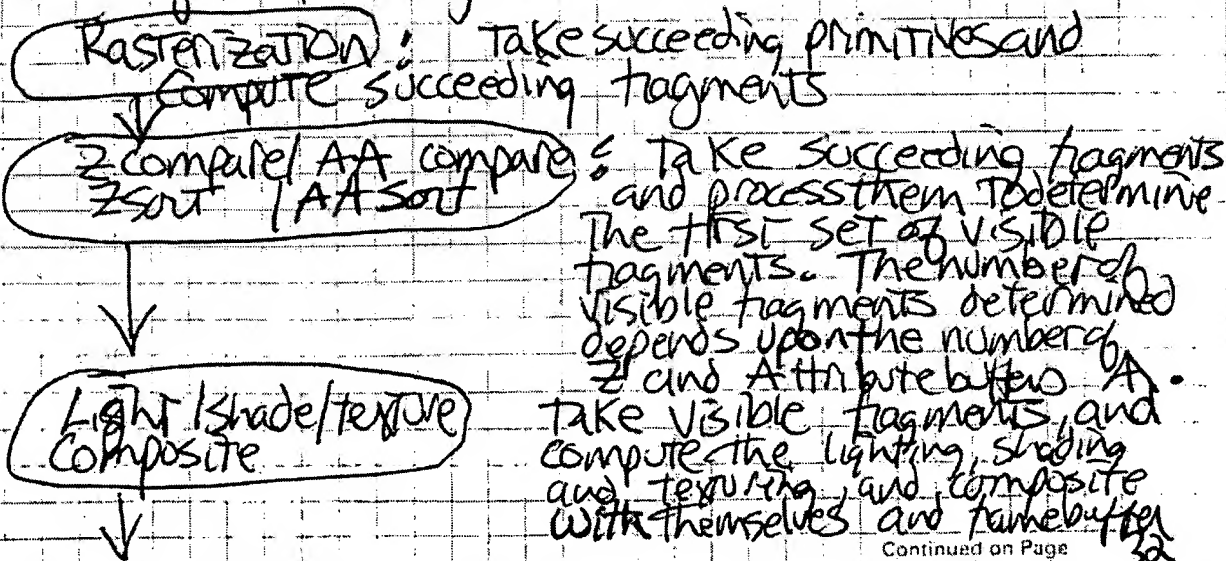 Rasterization : Take succeeding primitives and
Compute succeeding fragments
Z compare/ AA compare : Take succeeding fragments
Z sort / AA sort and process them to determine
the first set of visible
fragments. The number of
visible fragments determined
depends upon the number of
Z and Attribute buffers A.
Light/shade/texture Take visible fragments, and
Composite compute the lighting, shading
and texturing, and composite
with themselves and framebuffer
Continued on Page 32